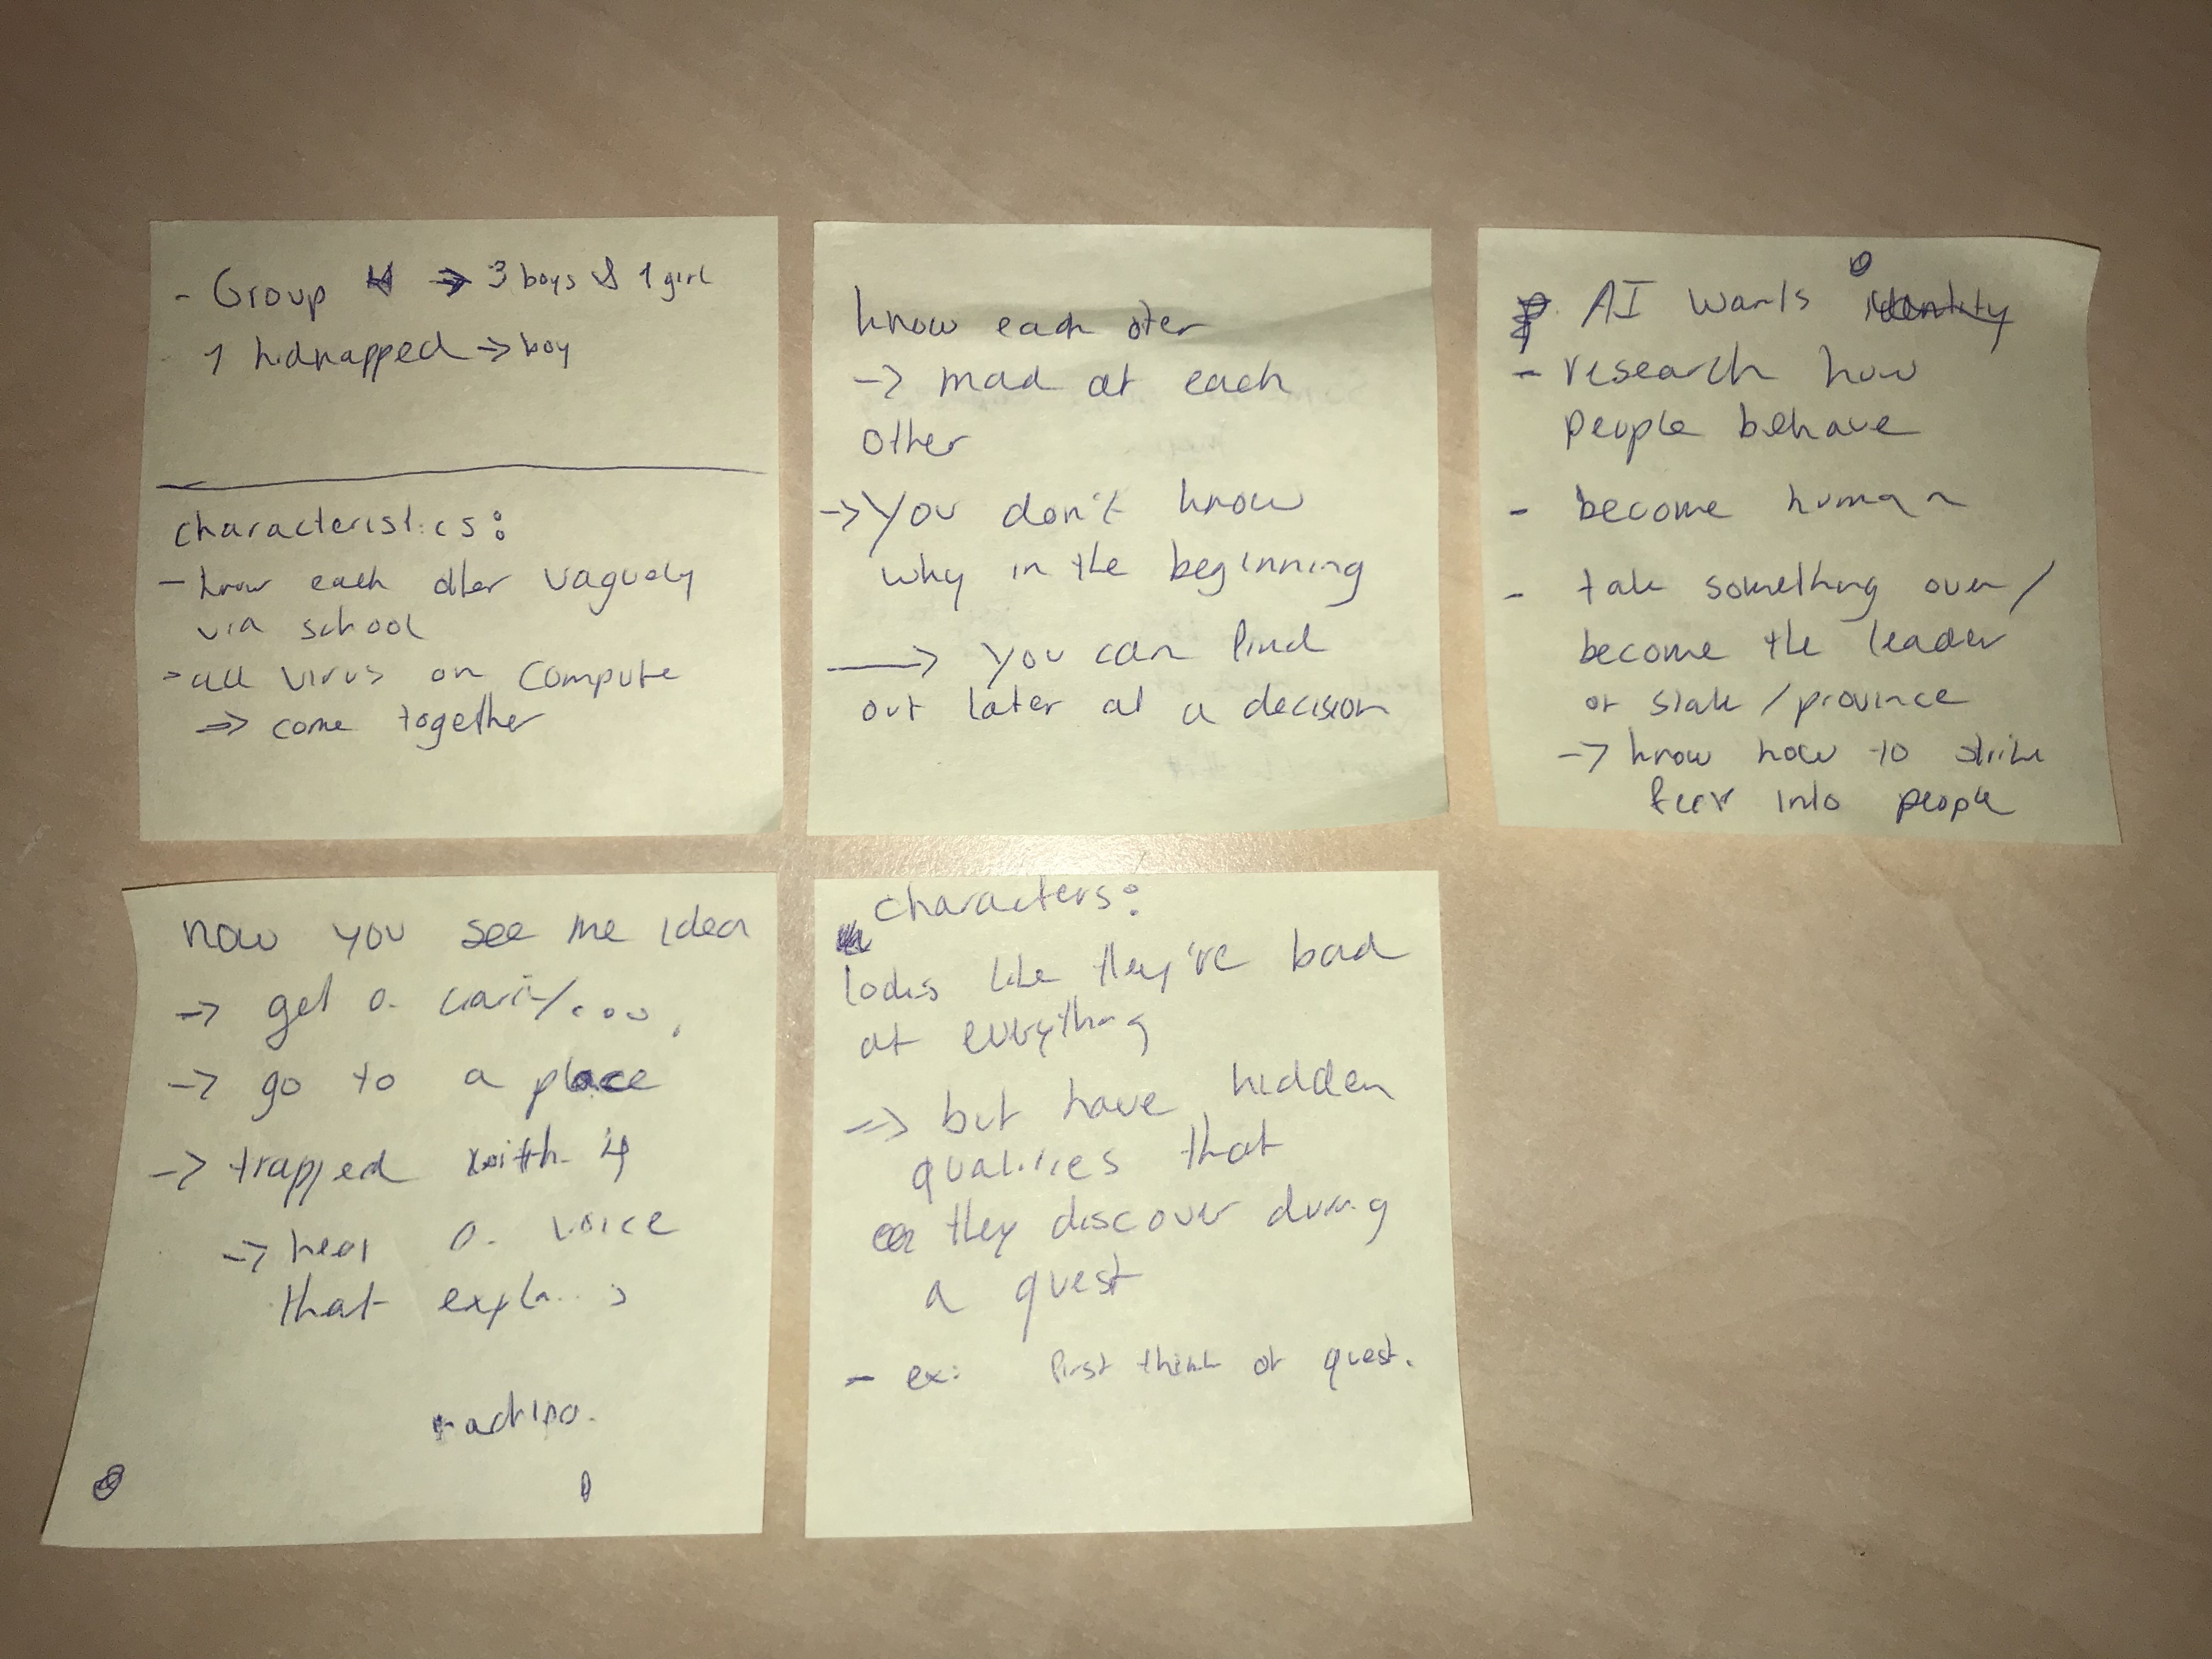 - Group 4 → 3 boys & 1 girl
1 kidnapped → boy
characteristics:
- know each other vaguely
via school
- all virus on compute
⇒ come together
know each oter
-> mad at each
other
-> You don't know
why in the beginning
-> you can find
out later at a decision
AI wants identity
- research how
people behave
- become human
- take something over /
become the leader
of state / province
-> know how to strike
fear into people
now you see me idea
-> get a
-> go to a place
-> trapped with 4
-> hear a voice
that explains
characters:
looks like they're bad
at everything
=> but have hidden
qualities that
they discover during
a quest
- ex: first think of quest.